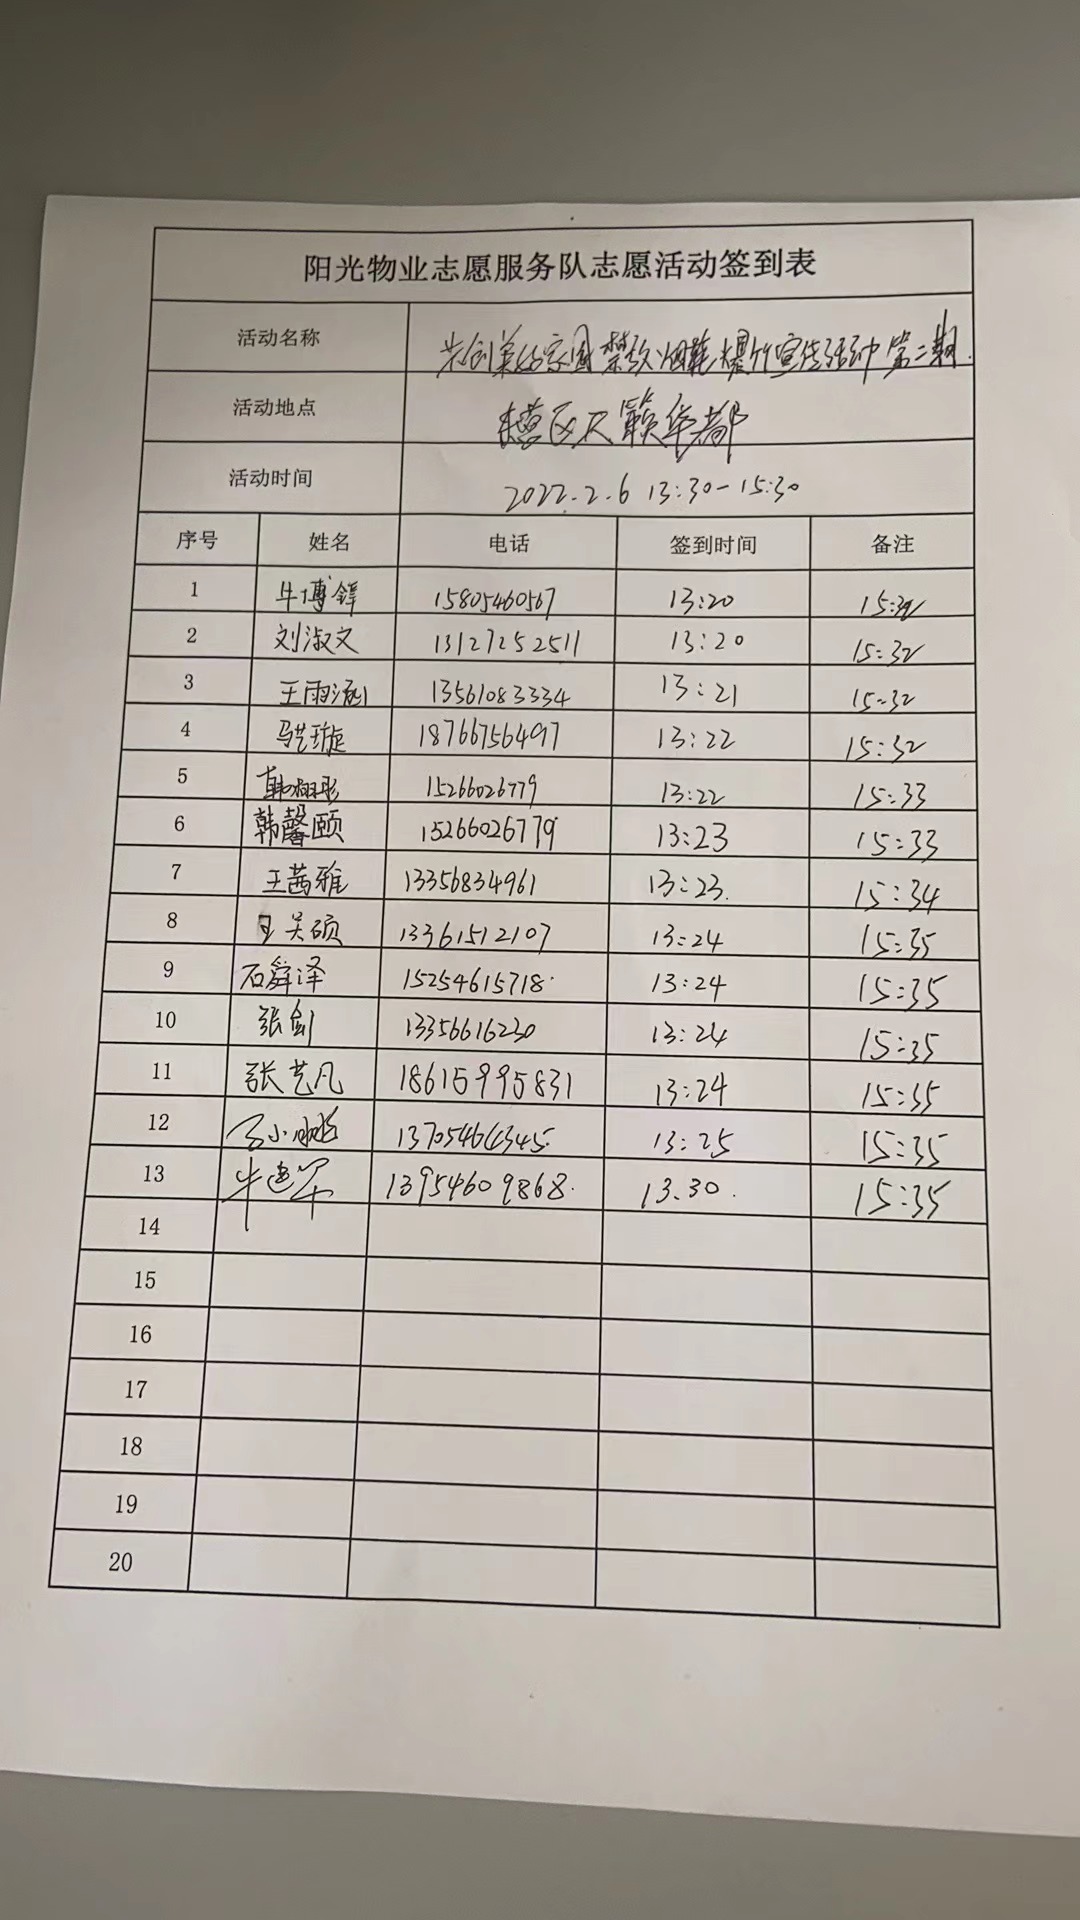 阳光物业志愿服务队志愿活动签到表
活动名称 共创美好家园禁放烟花爆竹宣传活动第二期.
活动地点 天籁华都
活动时间 2022.2.6 13:30-15:30
序号 姓名 电话 签到时间 备注
1 牛博铎 15805460567 13:20 15:32
2 刘淑文 13127252511 13:20 15:32
3 王雨涵 13561083334 13:21 15:32
4 马艺璇 18766756497 13:22 15:32
5 韩 15266026779 13:22 15:33
6 韩馨颐 15266026779 13:23 15:33
7 王茜雅 13356834961 13:23 15:34
8 王昊硕 13361512107 13:24 15:35
9 石舜泽 15254615718 13:24 15:35
10 张剑 13356616230 13:24 15:35
11 张艺凡 18615995831 13:24 15:35
12 13:25 15:35
13 牛建军 13954609868 13.30 15:35
14
15
16
17
18
19
20